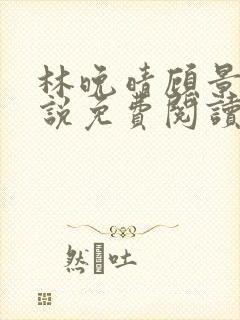 林晚晴顾景
說免費閱讀
然 吐